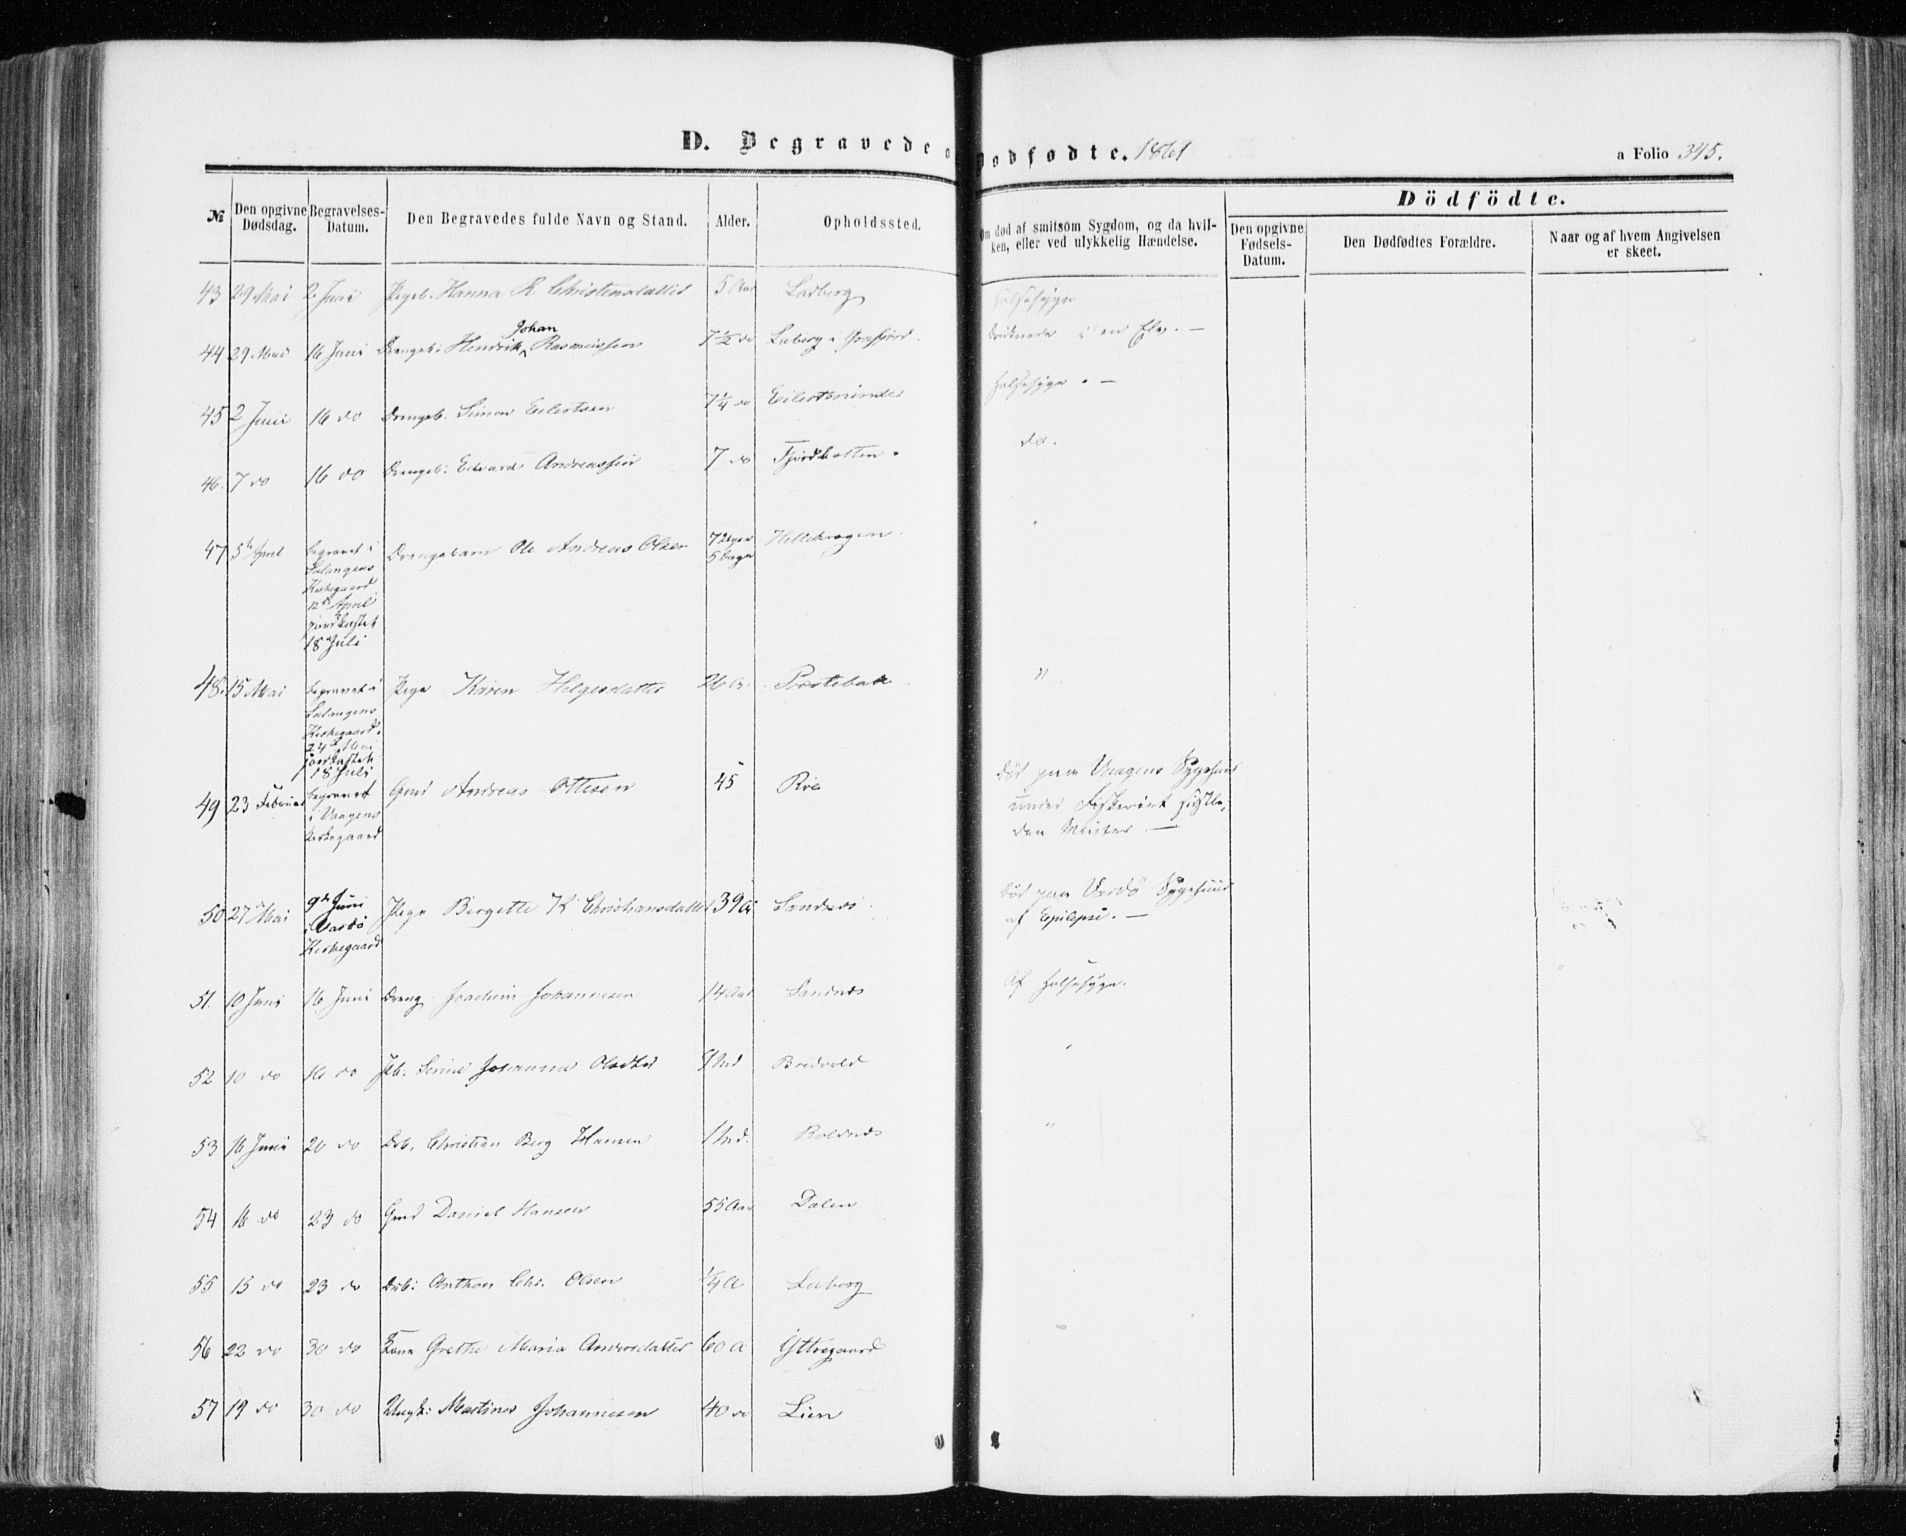 D. Begravede o
Dodfødte. 1861
a Folio 345.
Dödfödte.
№
Den opgivne Dødsdag.
Begravelses-Datum.
Den Begravedes fulde Navn og Stand.
Alder.
Opholdssted.
død af smitsom Sygdom, og da hvil-
ken, eller ved ulykkelig Hændelse.
Den opgivne Fødsels-Datum.
Den Dødfødtes Forældre.
Naar og af hvem Angivelsen er skeet.
43 29 Mai 2 Juni Pigeb. Hanna R. Christensdatter 5 Aar Laberg Halssyge
Johan
44 29 Mai 16 Juni Drengeb: Hendrik Rasmussen 7½ do Laberg i i en Elv. —
45 2 Juni 16 do Drengeb. Simon Eilertsen 7¼ do Halssyge. —
46. 7 do 16 do Drengeb: Edvard Andreassen 7 do Fjordbotten. do.
47 5te April begravet i Drengebarn Ole Andreas Olsen 7 Uger Hellekrogen. "
Salangens 5 Dage
Kirkegaard
12te April
jordkastet
18 Juli
48. 15 Mai begravet i Pige Karen Helgesdatter 26 a. "
Salangens
Kirkegaard
24de Mai
jordkastet
18 Juli
49 23 Februar begravet Gmd Andreas Ottesen 45 død paa Vaagens Sygehuus
i Vaagens under Fiskeriet sidstle-
Kirkegaard den Winter. —
50 27 Mai 9de Juni Pige Bergette K Christiansdatter 39 a Sandnes død paa Vardö Sygehuus
i Vardö af Epilepsi. —
Kirkegaard
51. 10 Juni 16 Juni Dreng. Joachim Johannesen 14 Aar Sandnes Af Halssyge.
52 10 do 16 do Pb. Johanna Olsdtr Md Bredvold "
53 16 Juni 20 do Drb. Christian Berg Hansen 1 Md. "
54 16 do 23 do Gmd Daniel Hansen 55 Aar Dalen
55 15 do 23 do Drb: Anthon Chr. Olsen ¼ a Laberg
56 22 do 30 do Kone Grethe Maria Andersdatter 60 a Yttregaard
57 19 do 30 do Ungk: Martinus Johannesen 40 do Lien